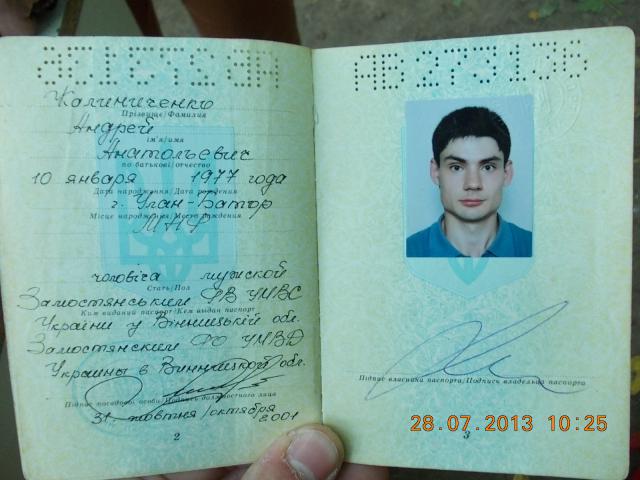 Калиниченко
Прізвище/Фамилия
Андрей
ім'я/имя
Анатольевич
по батькові/отчество
10 января 1977 года
Дата народження/Дата рождения
г. Улан-Батор
Місце народження/Место рождения
МНР
чоловіча мужской
Стать/Пол
Замостянським РВ УМВС
Ким виданий паспорт/Кем выдан паспорт
України у Вінницькій обл.
Замостянским РО УМВД
Украины в Винницкой обл.
Підпис посадової особи/Подпись должностного лица
31 жовтня/октября 2001
2
АВ 273136
Підпис власника паспорта/Подпись владельца паспорта
28.07.2013 10:25
3